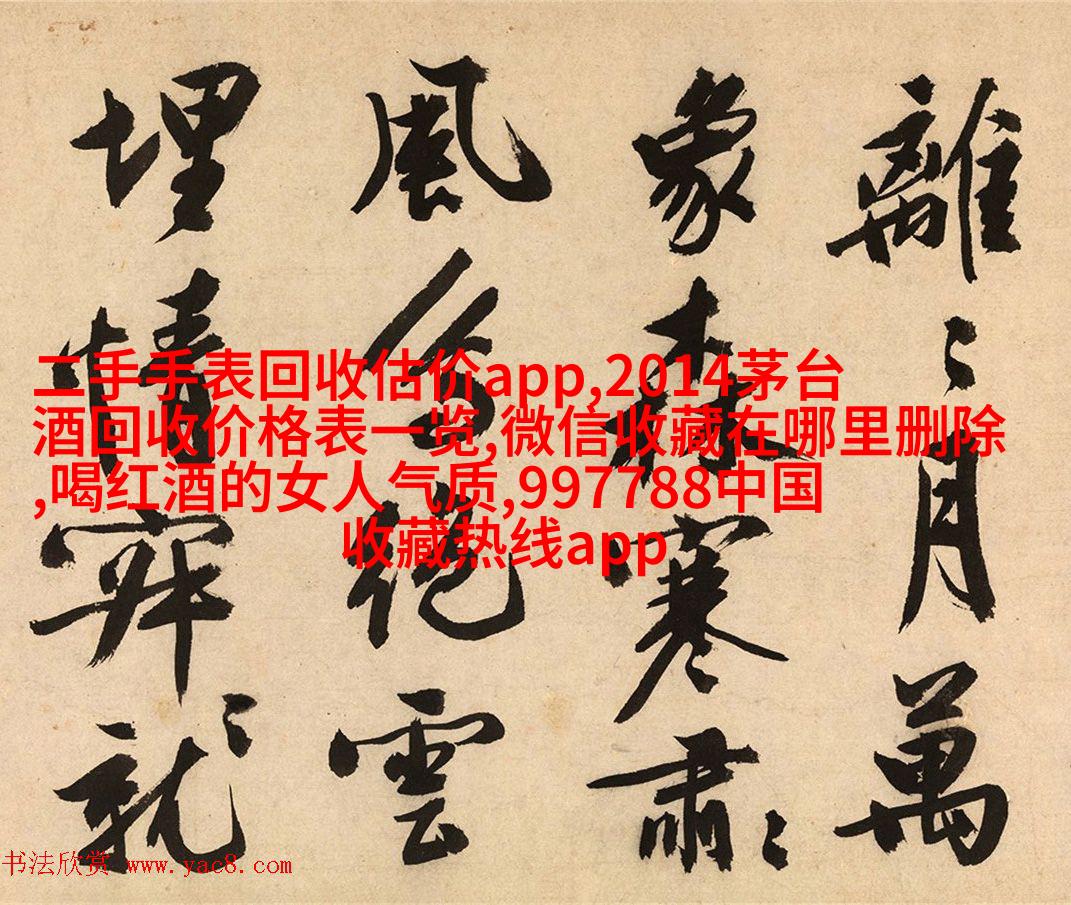 離〻月萬
象森寒肅〻
風雲
埋情就〻
二手手表回收估价app,2014茅台
酒回收价格表一览,微信收藏在哪里删除
,喝红酒的女人气质,997788中国
收藏热线app
书法欣赏 www.yac8.com